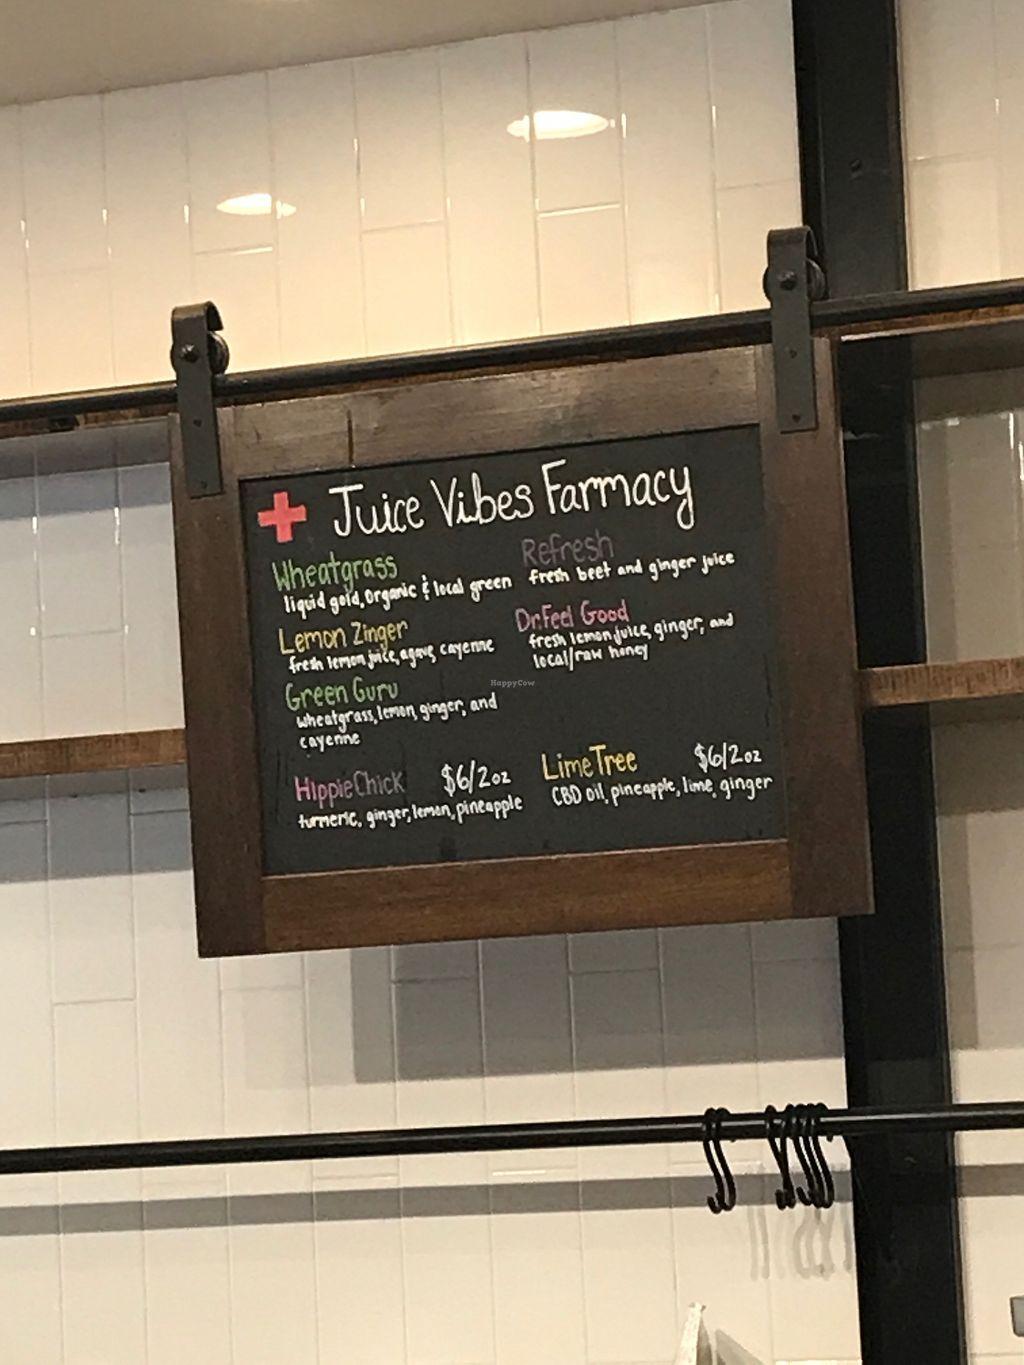 Juice Vibes Farmacy
Wheatgrass
liquid gold, organic & local green
Lemon Zinger
fresh lemon juice, agave, cayenne
Green Guru
wheatgrass, lemon, ginger, and
cayenne
HippieChick $6/2oz
turmeric, ginger, lemon, pineapple
Refresh
fresh beet and ginger juice
Dr.Feel Good
fresh lemon juice, ginger, and
local/raw honey
LimeTree $6/2oz
CBD oil, pineapple, lime, ginger
HappyCow